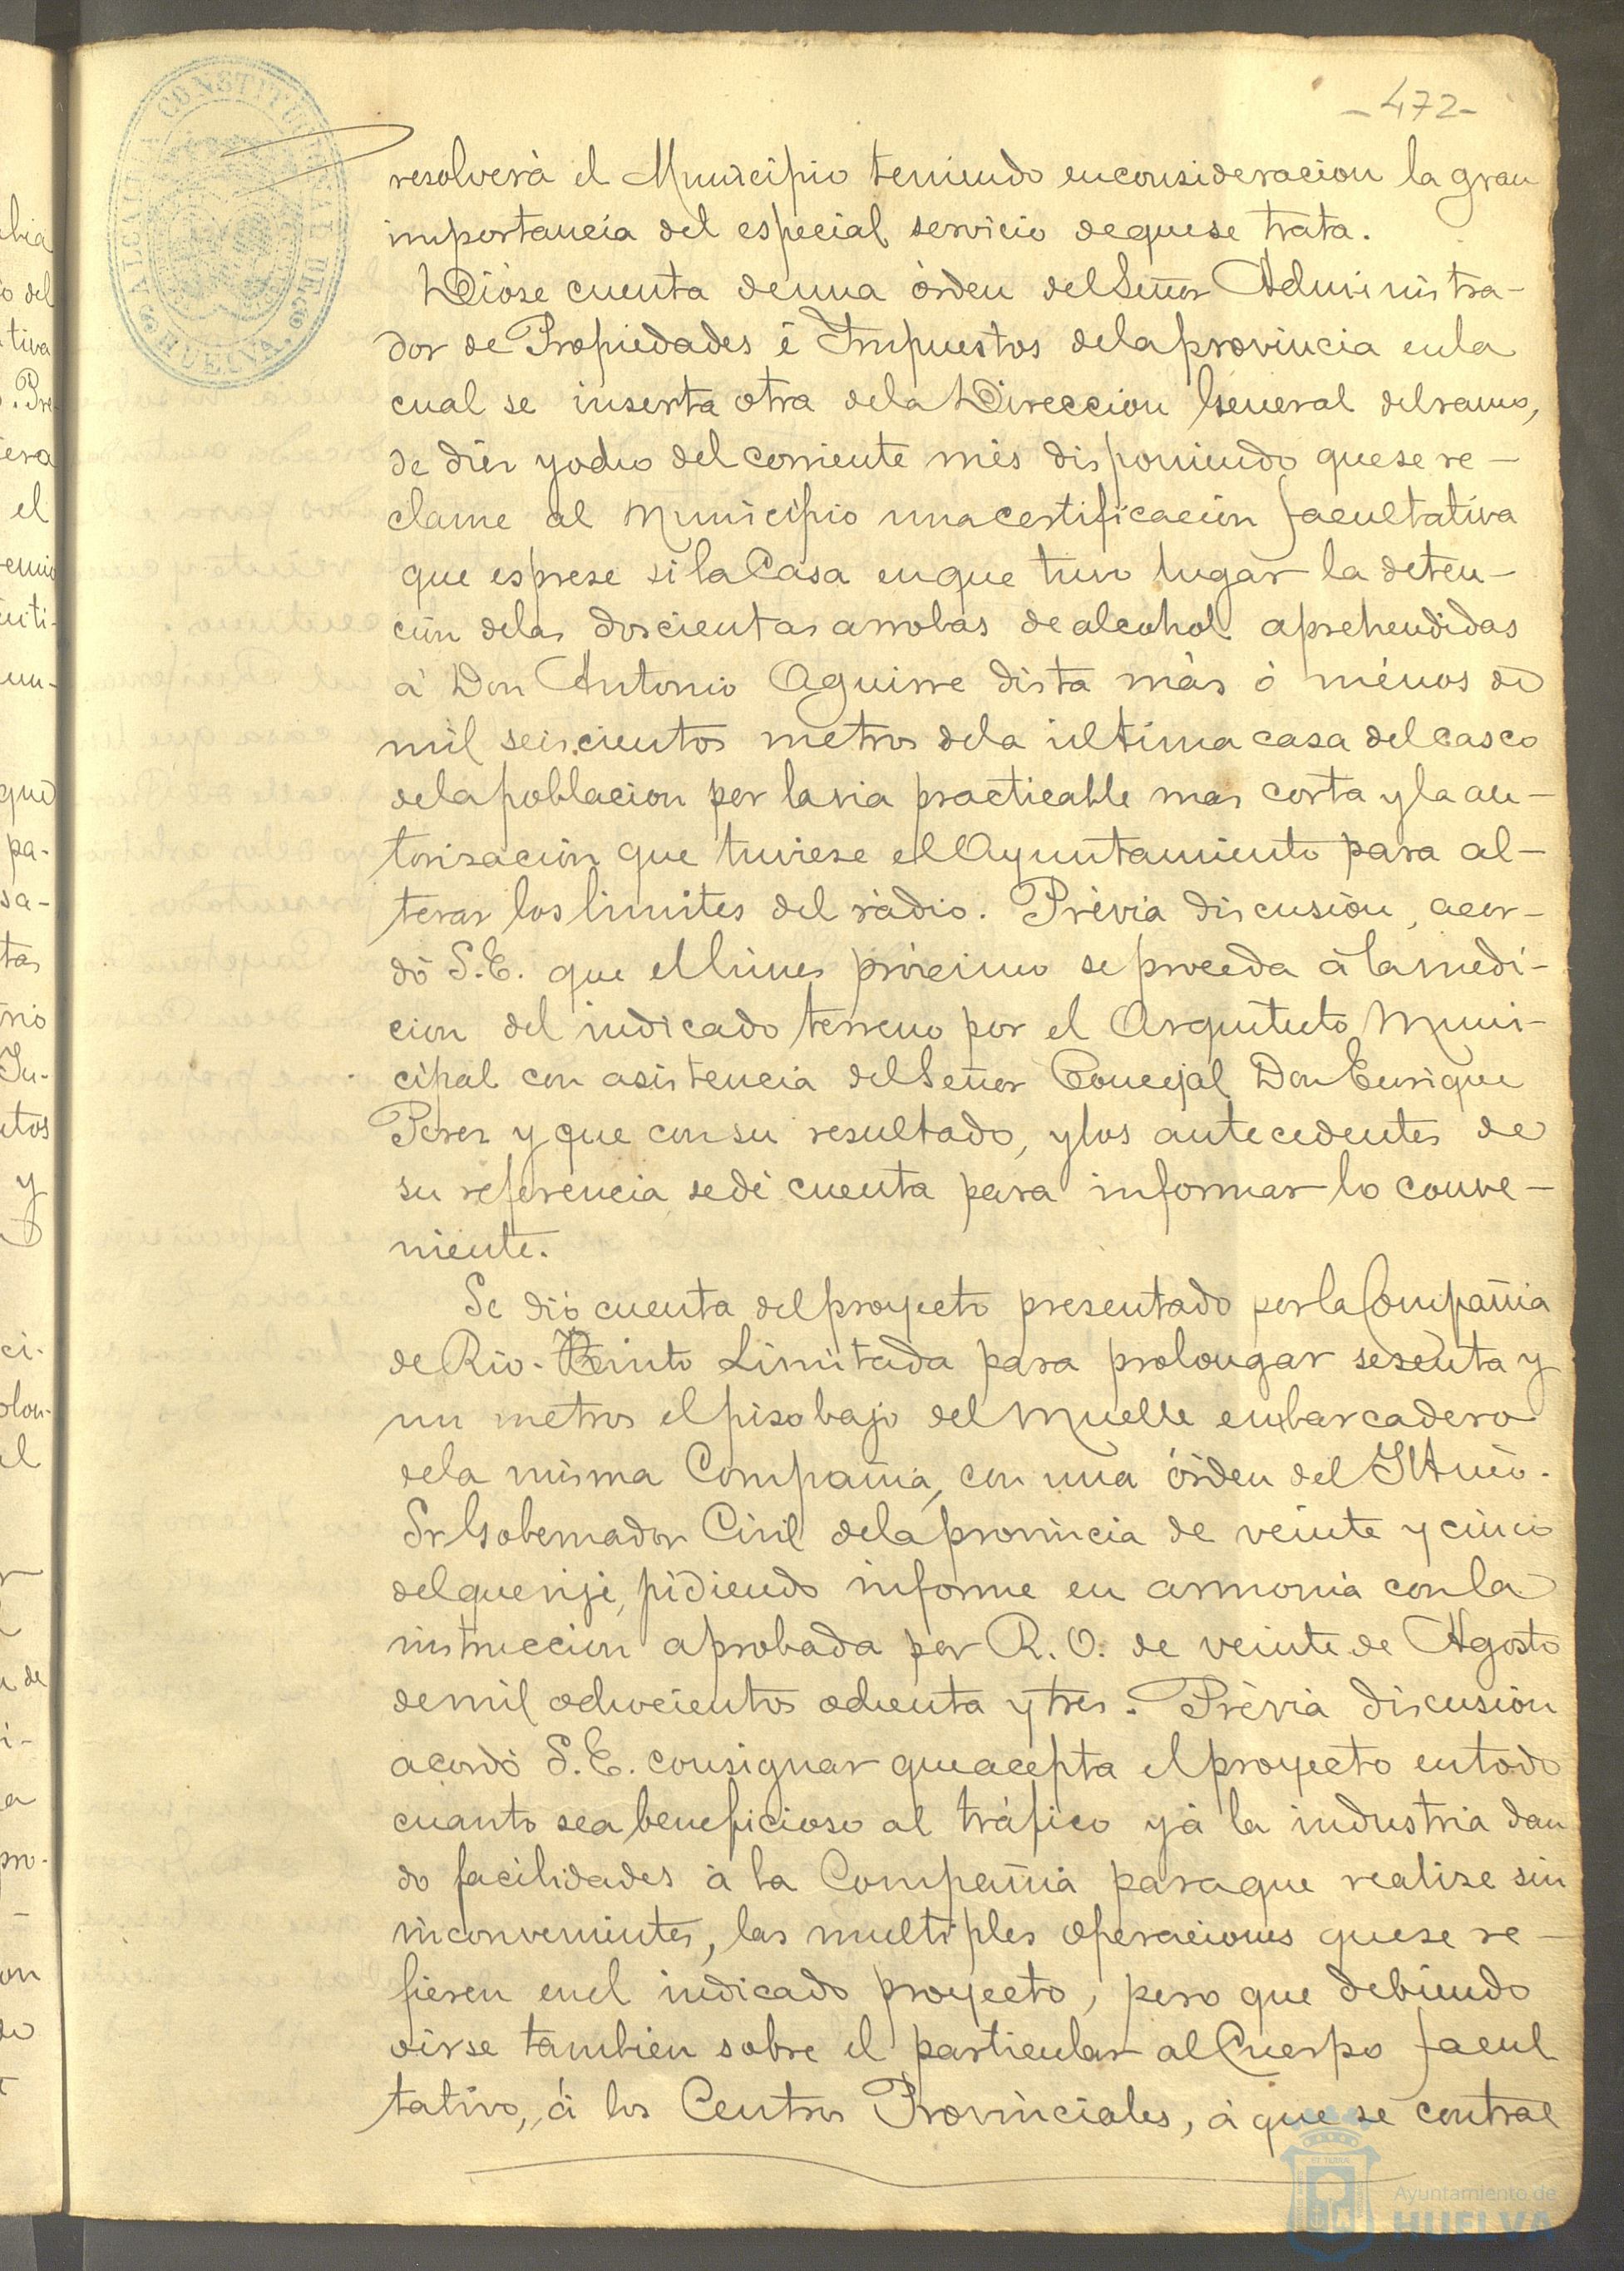 -472-
ALCALDIA CONSTITUCIONAL DE HUELVA
resolverá el Municipio teniendo en consideracion la gran
importancia del especial servicio de que se trata.
Dióse cuenta de una órden del Señor Administra-
dor de Propiedades é Impuestos de la provincia en la
cual se inserta otra de la Direccion General del ramo,
de diez y ocho del corriente més disponiendo que se re-
clame al Municipio una certificación facultativa
que esprese si la Casa en que tuvo lugar la deten-
ción de las doscientas arrobas de alcohol aprehendidas
á Don Antonio Aguirre dista más ó ménos de
mil seiscientos metros de la última casa del casco
de la poblacion por la via practicable mas corta y la au-
torisación que tuviese el Ayuntamiento para al-
terar los limites del rádio. Prévia discusión, acor-
dó S.E. que el lunes próximo se proceda á la medi-
cion del indicado terreno por el Arquitecto Muni-
cipal con asistencia del Señor Concejal Don Enrique
Perez y que con su resultado, y los antecedentes de
su referencia se dé cuenta para informar lo conve-
niente.
Se dió cuenta del proyecto presentado por la Compañia
de Rio-Tinto Limitada para prolongar sesenta y
un metros el piso bajo del Muelle embarcadero
de la misma Compañia, con una órden del Iltmo.
Sr Gobernador Civil de la provincia de veinte y cinco
del que rije, pidiendo informe en armonia con la
instruccion aprobada por R. O. de veinte de Agosto
de mil ochocientos ochenta y tres. Prévia discusión
acordó S.E. consignar que acepta el proyecto en todo
cuanto sea beneficioso al tráfico y á la industria dan
do facilidades á la Compañia para que realize sin
inconvenientes, las multiples operaciones que se re-
fieren en el indicado proyecto, pero que debiendo
oirse tambien sobre el particular al Cuerpo facul
tativo, á los Centros Provinciales, á que se contrae
Ayuntamiento de
HUELVA